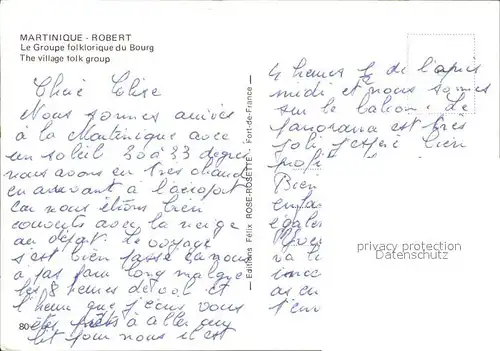 MARTINIQUE - ROBERT
Le Groupe folklorique du Bourg
The village folk group
Chère Elise
Nous sommes arrivés
à la Martinique avec
un soleil 30 à 33 degrés
nous avons eu très chaud
en arrivant à l'aéroport
car nous étions bien
couverts avec la neige
au départ. Le voyage
s'est bien passé
à pas long malgré
les 8 heures de vol et
l'heure que j'écris vous
êtes prêts à aller au
lit pour nous il est
80
— Editions Félix ROSE-ROSETTE - Fort-de-France —
4 heures ½ de l'après
midi et nous sommes
sur le balcon. Le
panorama est très
joli j'espère bien
profi
Bien
enfan
égaler
va
innoc
as en
t'env
privacy protection
Datenschutz